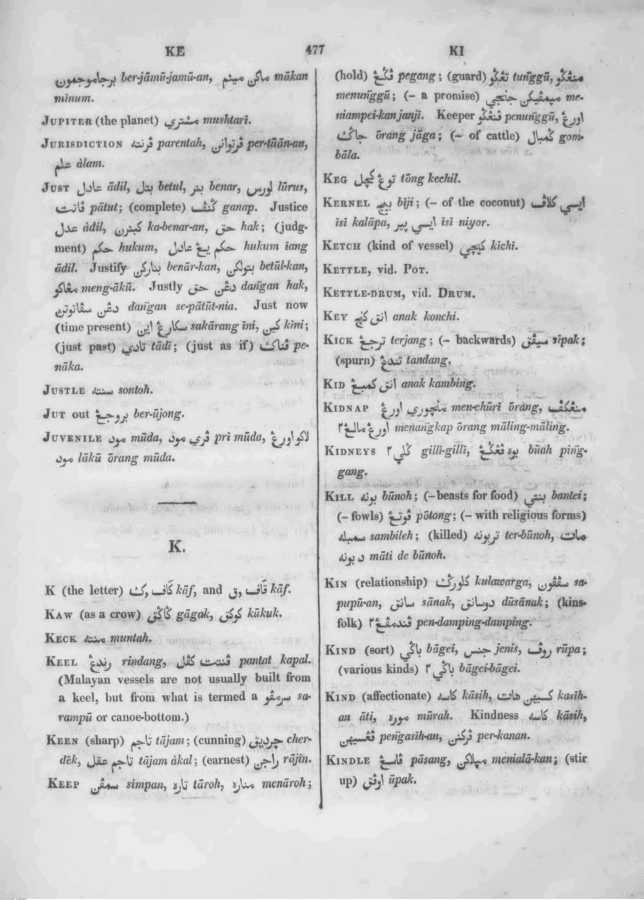 KE
477
KI
برجاموجمون ber-jāmū-jamū-an, ماكن مينم mākan
mīnum.
JUPITER (the planet) مشتري mushtari.
JURISDICTION فرنته parentah, فرتوانن per-tūān-an,
عالم ālam.
JUST عادل ādil, بتل betul, بنر benar, لورس lūrus,
فاتت pātut; (complete) گنف ganap. Justice
عدل ādil, كبنرن ka-benar-an, حق hak; (judg-
ment) حكم hukum, حكم يڠ عادل hukum iang
ādil. Justify بنارکن benār-kan, بتولکن betūl-kan,
مڠاكو meng-ākū. Justly دڠن حق dañgan hak,
دڠن سفاتوتن dañgan se-pātūt-nia. Just now
(time present) سكارڠ اين sakārang īni, كين kīni;
(just past) تادي tādī; (just as if) فناك pe-
nāka.
JUSTLE سنته sontoh.
JUT out بروجڠ ber-ūjong.
JUVENILE مود mūda, فري مود pri mūda, لاكو اورڠ
مود lākū ōrang mūda.
K.
K (the letter) كاف ,ك kāf, and قاف ,ق kāf.
KAW (as a crow) گاگق gāgak, كوكق kūkuk.
KECK منته muntah.
KEEL رندڠ rindang, فنتت كفل pantat kapal.
(Malayan vessels are not usually built from
a keel, but from what is termed a سرمفو sa-
rampū or canoe-bottom.)
KEEN (sharp) تاجم tājam; (cunning) چرديق cher-
dēk, تاجم عقل tājam ākal; (earnest) راجن rājin.
KEEP سمفن simpan, تاره tāroh, مناره menāroh;
(hold) فڬڠ pegang; (guard) تڠگو tuñggū, منڠگو
menuñggū; (– a promise) ميمفيكن جنجي me-
niampei-kan janji. Keeper فنڠگو penuñggū, اورڠ
جاگ ōrang jāga; (– of cattle) گمبال gom-
bāla.
KEG توڠ كچل tōng kechil.
KERNEL بيج bīji; (– of the coconut) ايسي كلاف
īsi kalāpa, ايسي نير īsi niyor.
KETCH (kind of vessel) كيچي kichi.
KETTLE, vid. POT.
KETTLE-DRUM, vid. DRUM.
KEY انق كنچ anak konchi.
KICK ترجڠ terjang; (– backwards) سيفق sīpak;
(spurn) تندڠ tandang.
KID انق كمبڠ anak kambing.
KIDNAP منچوري اورڠ men-chūri ōrang, منڠكف
اورڠ مالڠ٢ menangkap ōrang māling-māling.
KIDNEYS گلي٢ gilli-gilli, بوه فڠگڠ būah piñg-
gang.
KILL بونه būnoh; (– beasts for food) بنتي bantei;
(– fowls) فوتڠ pōtong; (– with religious forms)
سمبله sambileh; (killed) تربونه ter-būnoh, مات
د بونه māti de būnoh.
KIN (relationship) كلورگ kulawarga, سففون sa-
pupū-an, سانق sānak, دوسانق dūsānak; (kins-
folk) فندمفڠ٢ pen-damping-damping.
KIND (sort) باگي bāgei, جنس jenis, روف rūpa;
(various kinds) باگي٢ bāgei-bāgei.
KIND (affectionate) كاسه kāsih, كسيهن هات kasih-
an āti, موره mūrah. Kindness كاسه kāsih,
فڠسيهن peñgasih-an, فركنن per-kanan.
KINDLE فاسڠ pāsang, ميالاكن menialā-kan; (stir
up) اوفق ūpak.